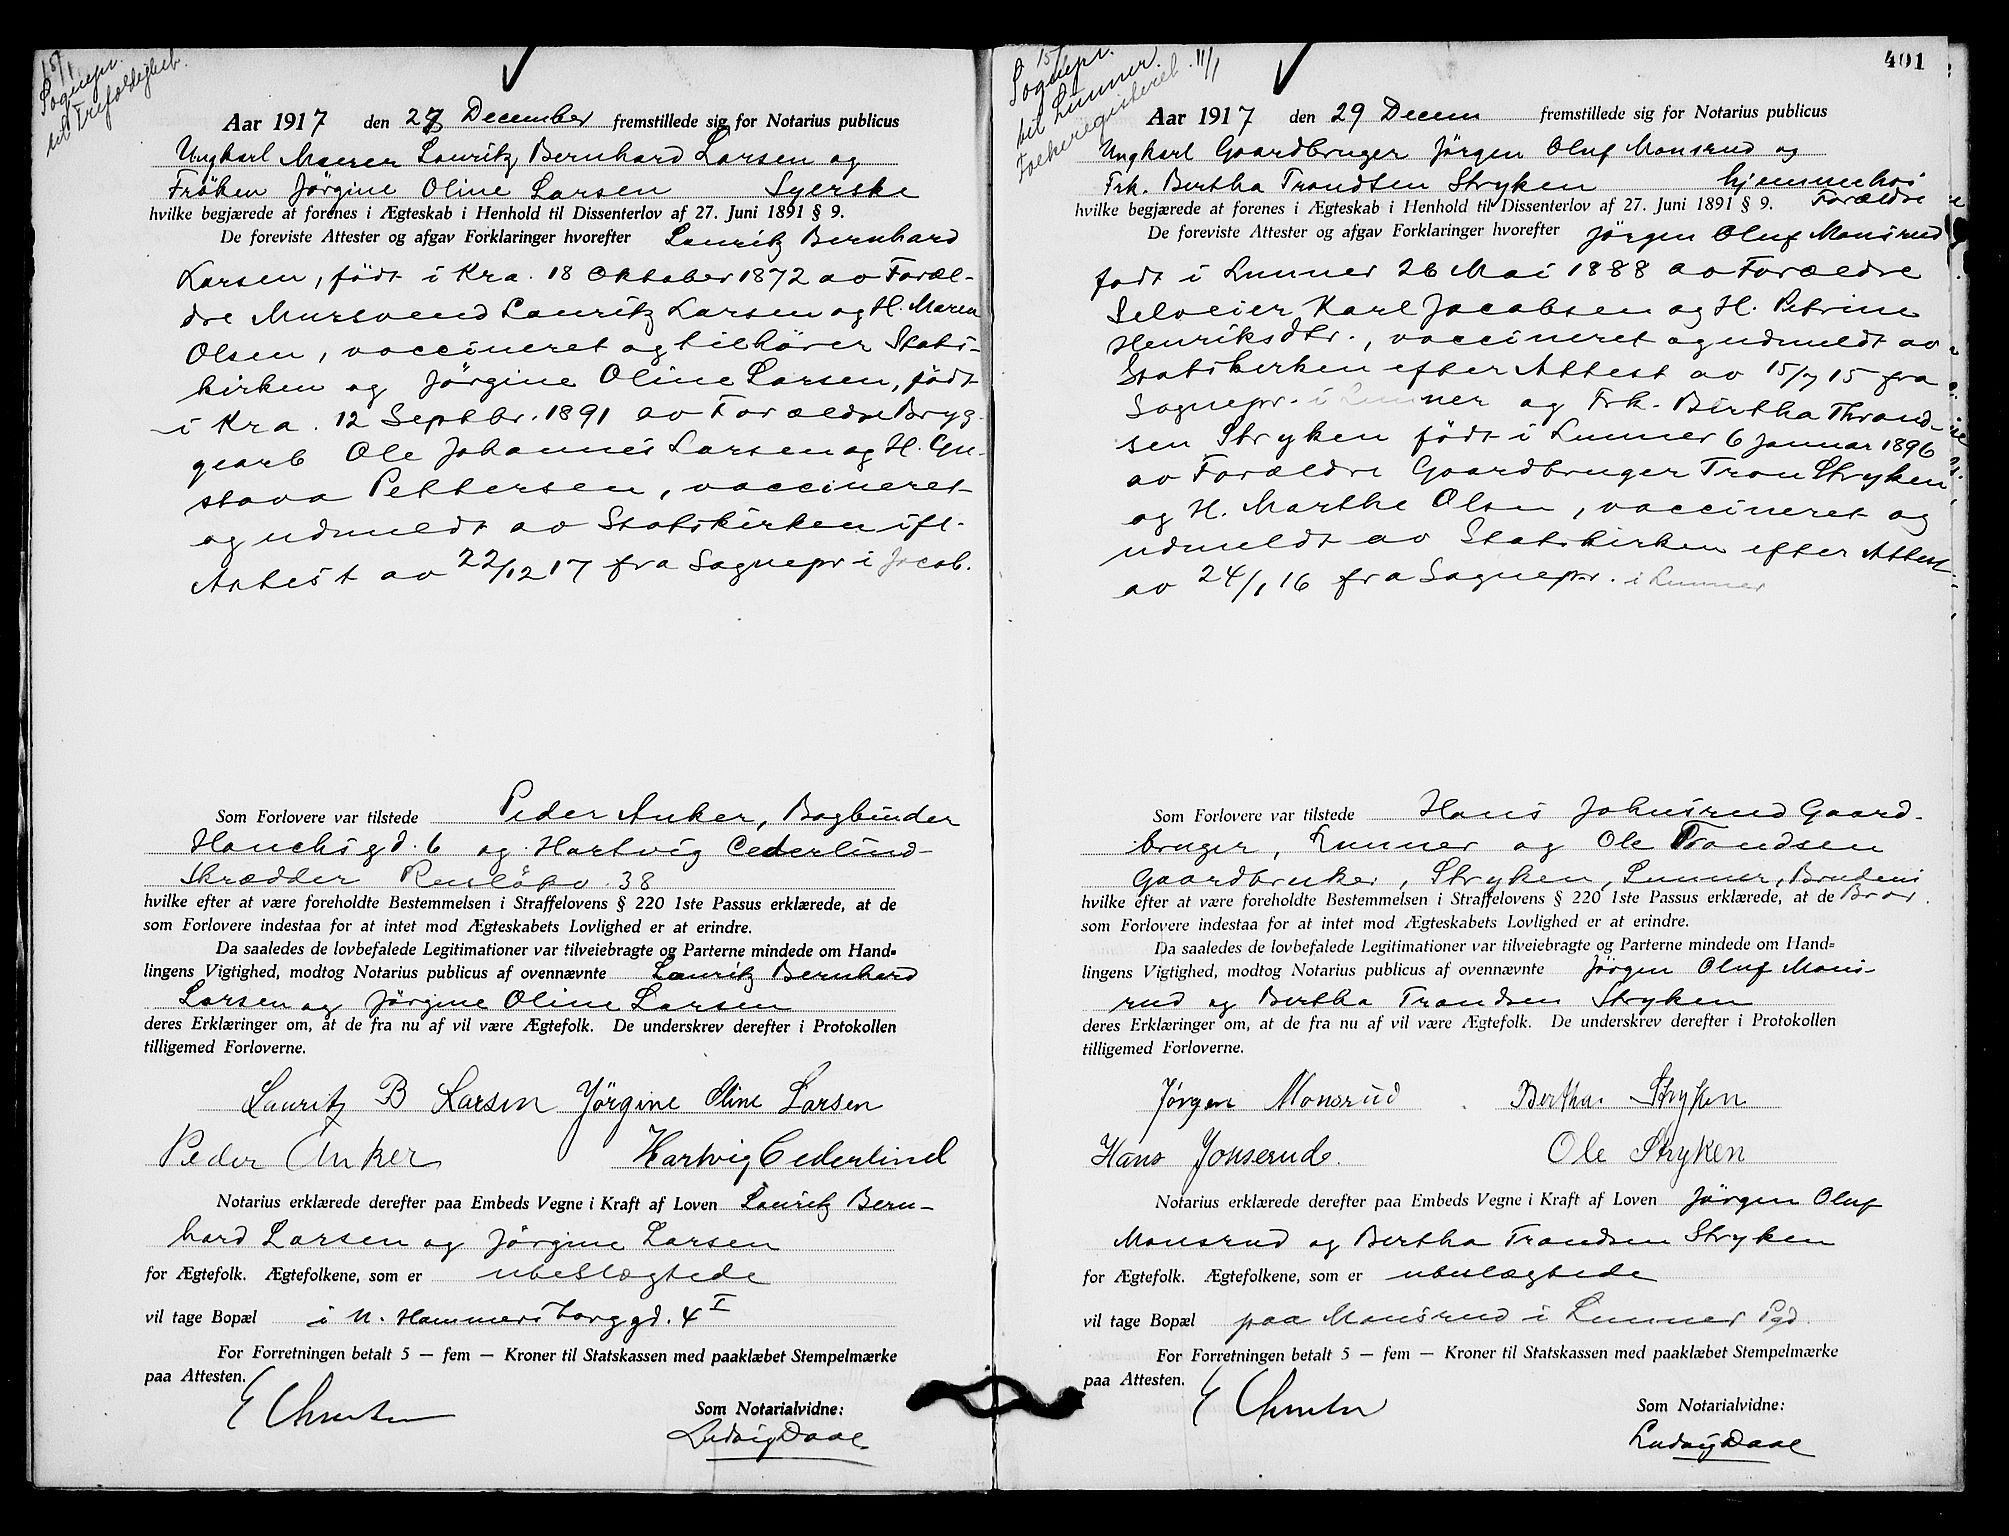 15/1
Sognepr.
til Trefoldighed.
Aar 1917 den 27 December fremstillede sig for Notarius publicus
Ungkarl Murer Lauritz Bernhard Larsen og
Frøken Jörgine Oline Larsen Syerske
hvilke begjærede at forenes i Ægteskab i Henhold til Dissenterlov af 27. Juni 1891 § 9.
De foreviste Attester og afgav Forklaringer hvorefter Lauritz Bernhard
Larsen, födt i Kra. 18 Oktober 1872 av Foræl-
dre Mursvend Lauritz Larsen og H. Maren
Olsen, vaccineret og tilhører Stats-
kirken og Jörgine Oline Larsen, födt
i Kra. 12 Septbr. 1891 av Forældre Bryg-
gearb Ole Johannes Larsen og H. Gu-
stava Pettersen, vaccineret
og udmeldt av Statskirken ifl.
Attest av 22/12 17 fra Sognepr i Jacob.
Som Forlovere var tilstede Peder Anker, Bogbinder
Hauchsgd. 6 og Hartvig Cederlind
Skrædder 38
hvilke efter at være foreholdte Bestemmelsen i Straffelovens § 220 1ste Passus erklærede, at de
som Forlovere indestaa for at intet mod Ægteskabets Lovlighed er at erindre.
Da saaledes de lovbefalede Legitimationer var tilveiebragte og Parterne mindede om Hand=
lingens Vigtighed, modtog Notarius publicus af ovennævnte Lauritz Bernhard
Larsen og Jörgine Oline Larsen
deres Erklæringer om, at de fra nu af vil være Ægtefolk. De underskrev derefter i Protokollen
tilligemed Forloverne.
Lauritz B Larsen Jörgine Oline Larsen
Peder Anker Hartvig Cederlind
Notarius erklærede derefter paa Embeds Vegne i Kraft af Loven Lauritz Bern-
hard Larsen og Jörgine Larsen
for Ægtefolk. Ægtefolkene, som er ubeslægtede
vil tage Bopæl i N. Hammersborggd. 4 I
For Forretningen betalt 5 — fem — Kroner til Statskassen med paaklæbet Stempelmærke
paa Attesten.
Som Notarialvidne:
Ludvig Daae
401
15/1
Sognepr.
til Lunner.
Folkeregisteret 11/1
Aar 1917 den 29 Decem fremstillede sig for Notarius publicus
Ungkarl Gaardbruger Jörgen Oluf Monsrud og
Frk. Bertha Trandsen Stryken hjemmehos
Forældre
hvilke begjærede at forenes i Ægteskab i Henhold til Dissenterlov af 27. Juni 1891 § 9.
De foreviste Attester og afgav Forklaringer hvorefter Jörgen Oluf Monsrud
født i Lunner 26 Mai 1888 av Forældre
Selveier Karl Jacobsen og H. Petrine
Henriksdtr., vaccineret og udmeldt av
Statskirken efter Attest av 15/7 15 fra
Sognepr. i Lunner og Frk. Bertha Thrand-
sen Stryken födt i Lunner 6 Januar 1896
av Forældre Gaardbruger Tron Stryken
og H. Marthe Olsen, vaccineret og
udmeldt av Statskirken efter Attest
av 24/1 16 fra Sognepr. i Lunner
Som Forlovere var tilstede Hans Johnsrud Gaard-
bruger, Lunner og Ole Trandsen
Gaardbruker, Stryken, Lunner, Brudens
Bror.
hvilke efter at være foreholdte Bestemmelsen i Straffelovens § 220 1ste Passus erklærede, at de
som Forlovere indestaa for at intet mod Ægteskabets Lovlighed er at erindre.
Da saaledes de lovbefalede Legitimationer var tilveiebragte og Parterne mindede om Hand=
lingens Vigtighed, modtog Notarius publicus af ovennævnte Jörgen Oluf Mons-
rud og Bertha Trandsen Stryken
deres Erklæringer om, at de fra nu af vil være Ægtefolk. De underskrev derefter i Protokollen
tilligemed Forloverne.
Jørgen Monsrud Bertha Stryken
Hans Jonserud. Ole Stryken
Notarius erklærede derefter paa Embeds Vegne i Kraft af Loven Jörgen Oluf
Monsrud og Bertha Trandsen Stryken
for Ægtefolk. Ægtefolkene, som er ubeslægtede
vil tage Bopæl paa Monsrud i Lunner Pgd.
For Forretningen betalt 5 — fem — Kroner til Statskassen med paaklæbet Stempelmærke
paa Attesten.
Som Notarialvidne:
Ludvig Daae